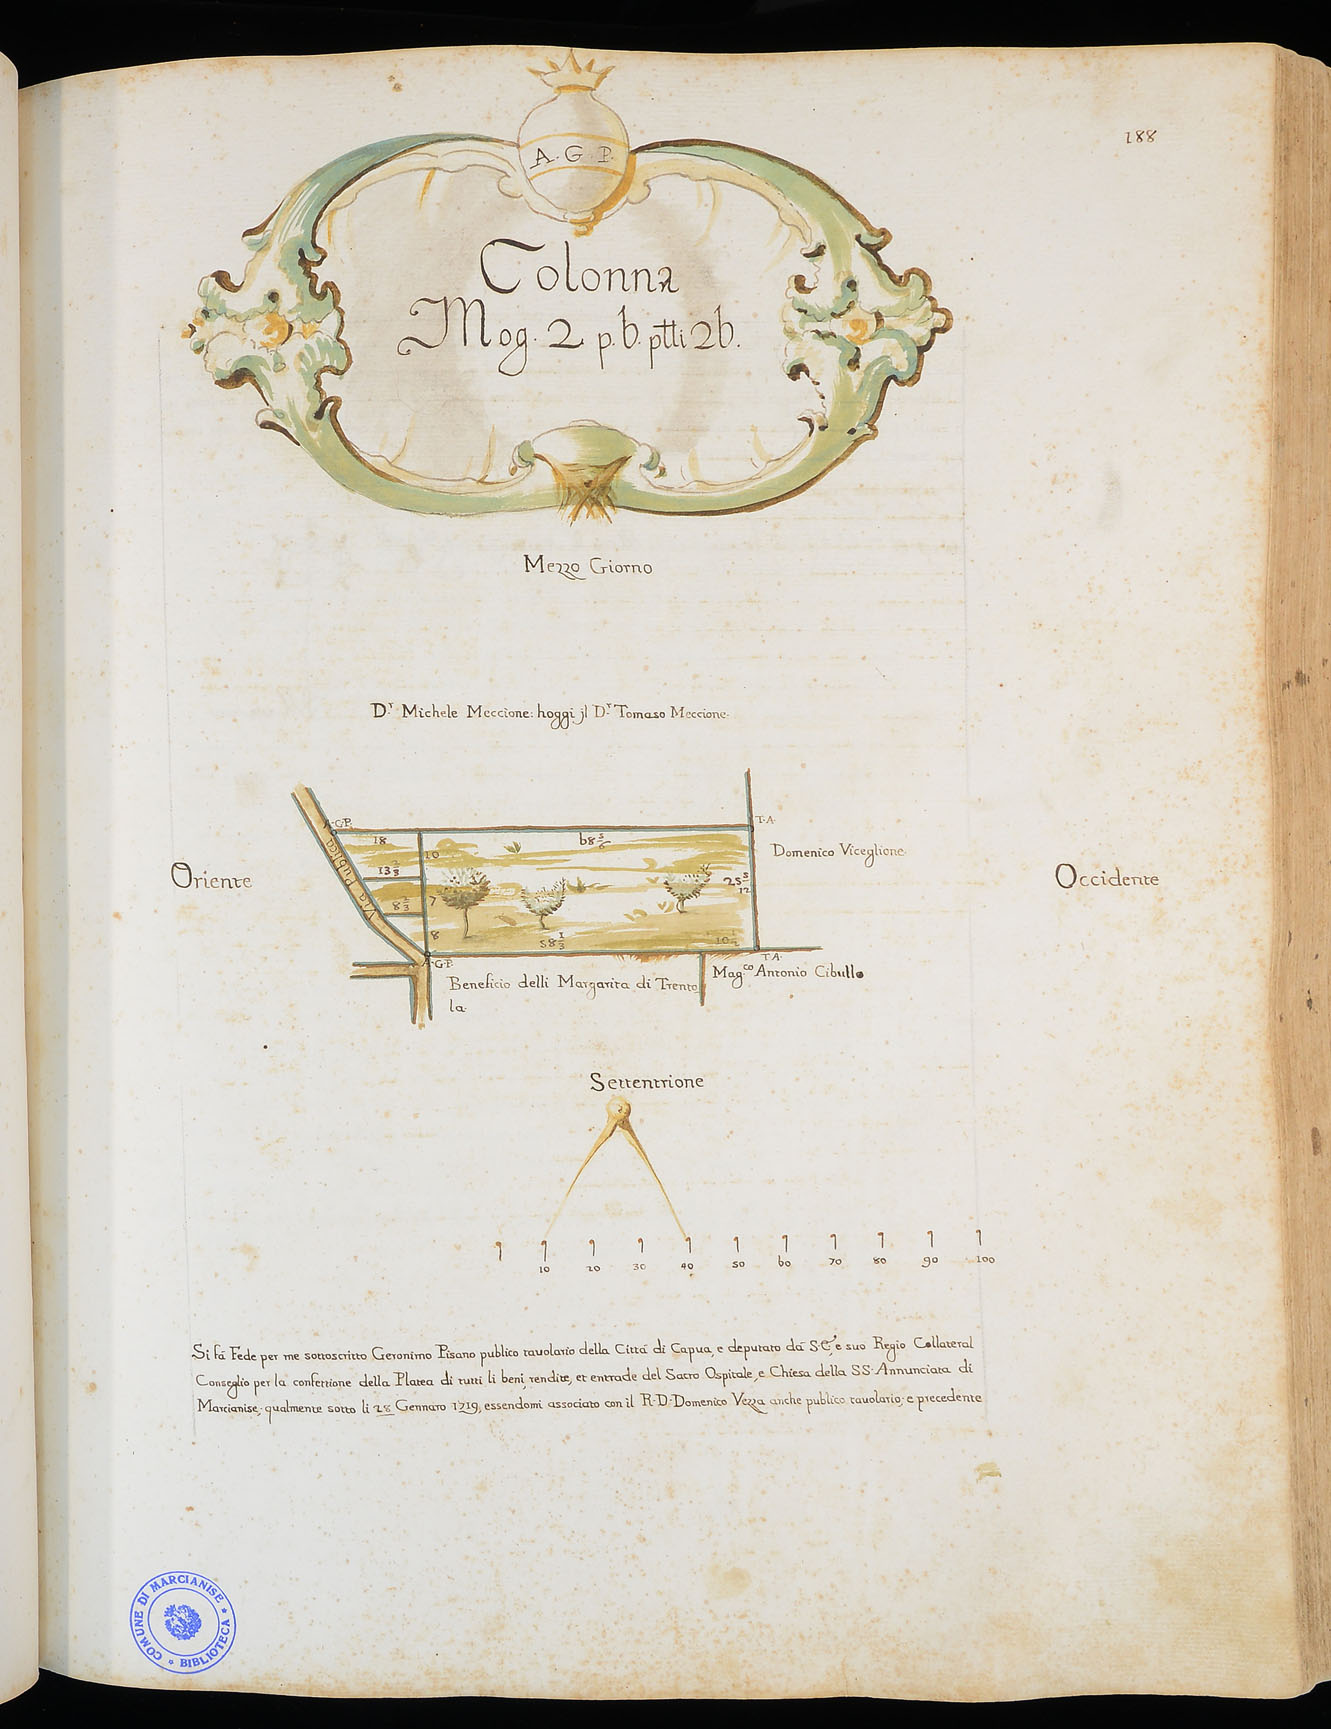 188
A. G. P.
Colonna
Mog. 2 p. b. ptti 2b.
Mezzo Giorno
D.r Michele Meccione: hoggi jl D.r Tomaso Meccione.
A.G.P.
T.A.
18
b8 5/6
10
Domenico Viceglione
13 2/3
Via Publica
Oriente
Occidente
25 5/12
8 2/3
7
8
58 1/3
10 1/2
A.G.P.
T.A.
Mag.co Antonio Cibullo
Beneficio delli Margarita di Trento
la.
Settentrione
10 20 30 40 50 60 70 80 90 100
Si fà Fede per me sottoscritto Geronimo Pisano publico tavolario della Città di Capua, e deputato dà S.E., e suo Regio Collateral
Conseglio per la confettione della Platea di tutti li beni, rendite, et entrade del Sacro Ospitale, e Chiesa della SS. Annunciata di
Marcianise, qualmente sotto li 28 Gennaro 1719, essendomi associato con il R. D. Domenico Vezza anche publico tavolario, e precedente
COMUNE DI MARCIANISE * BIBLIOTECA *